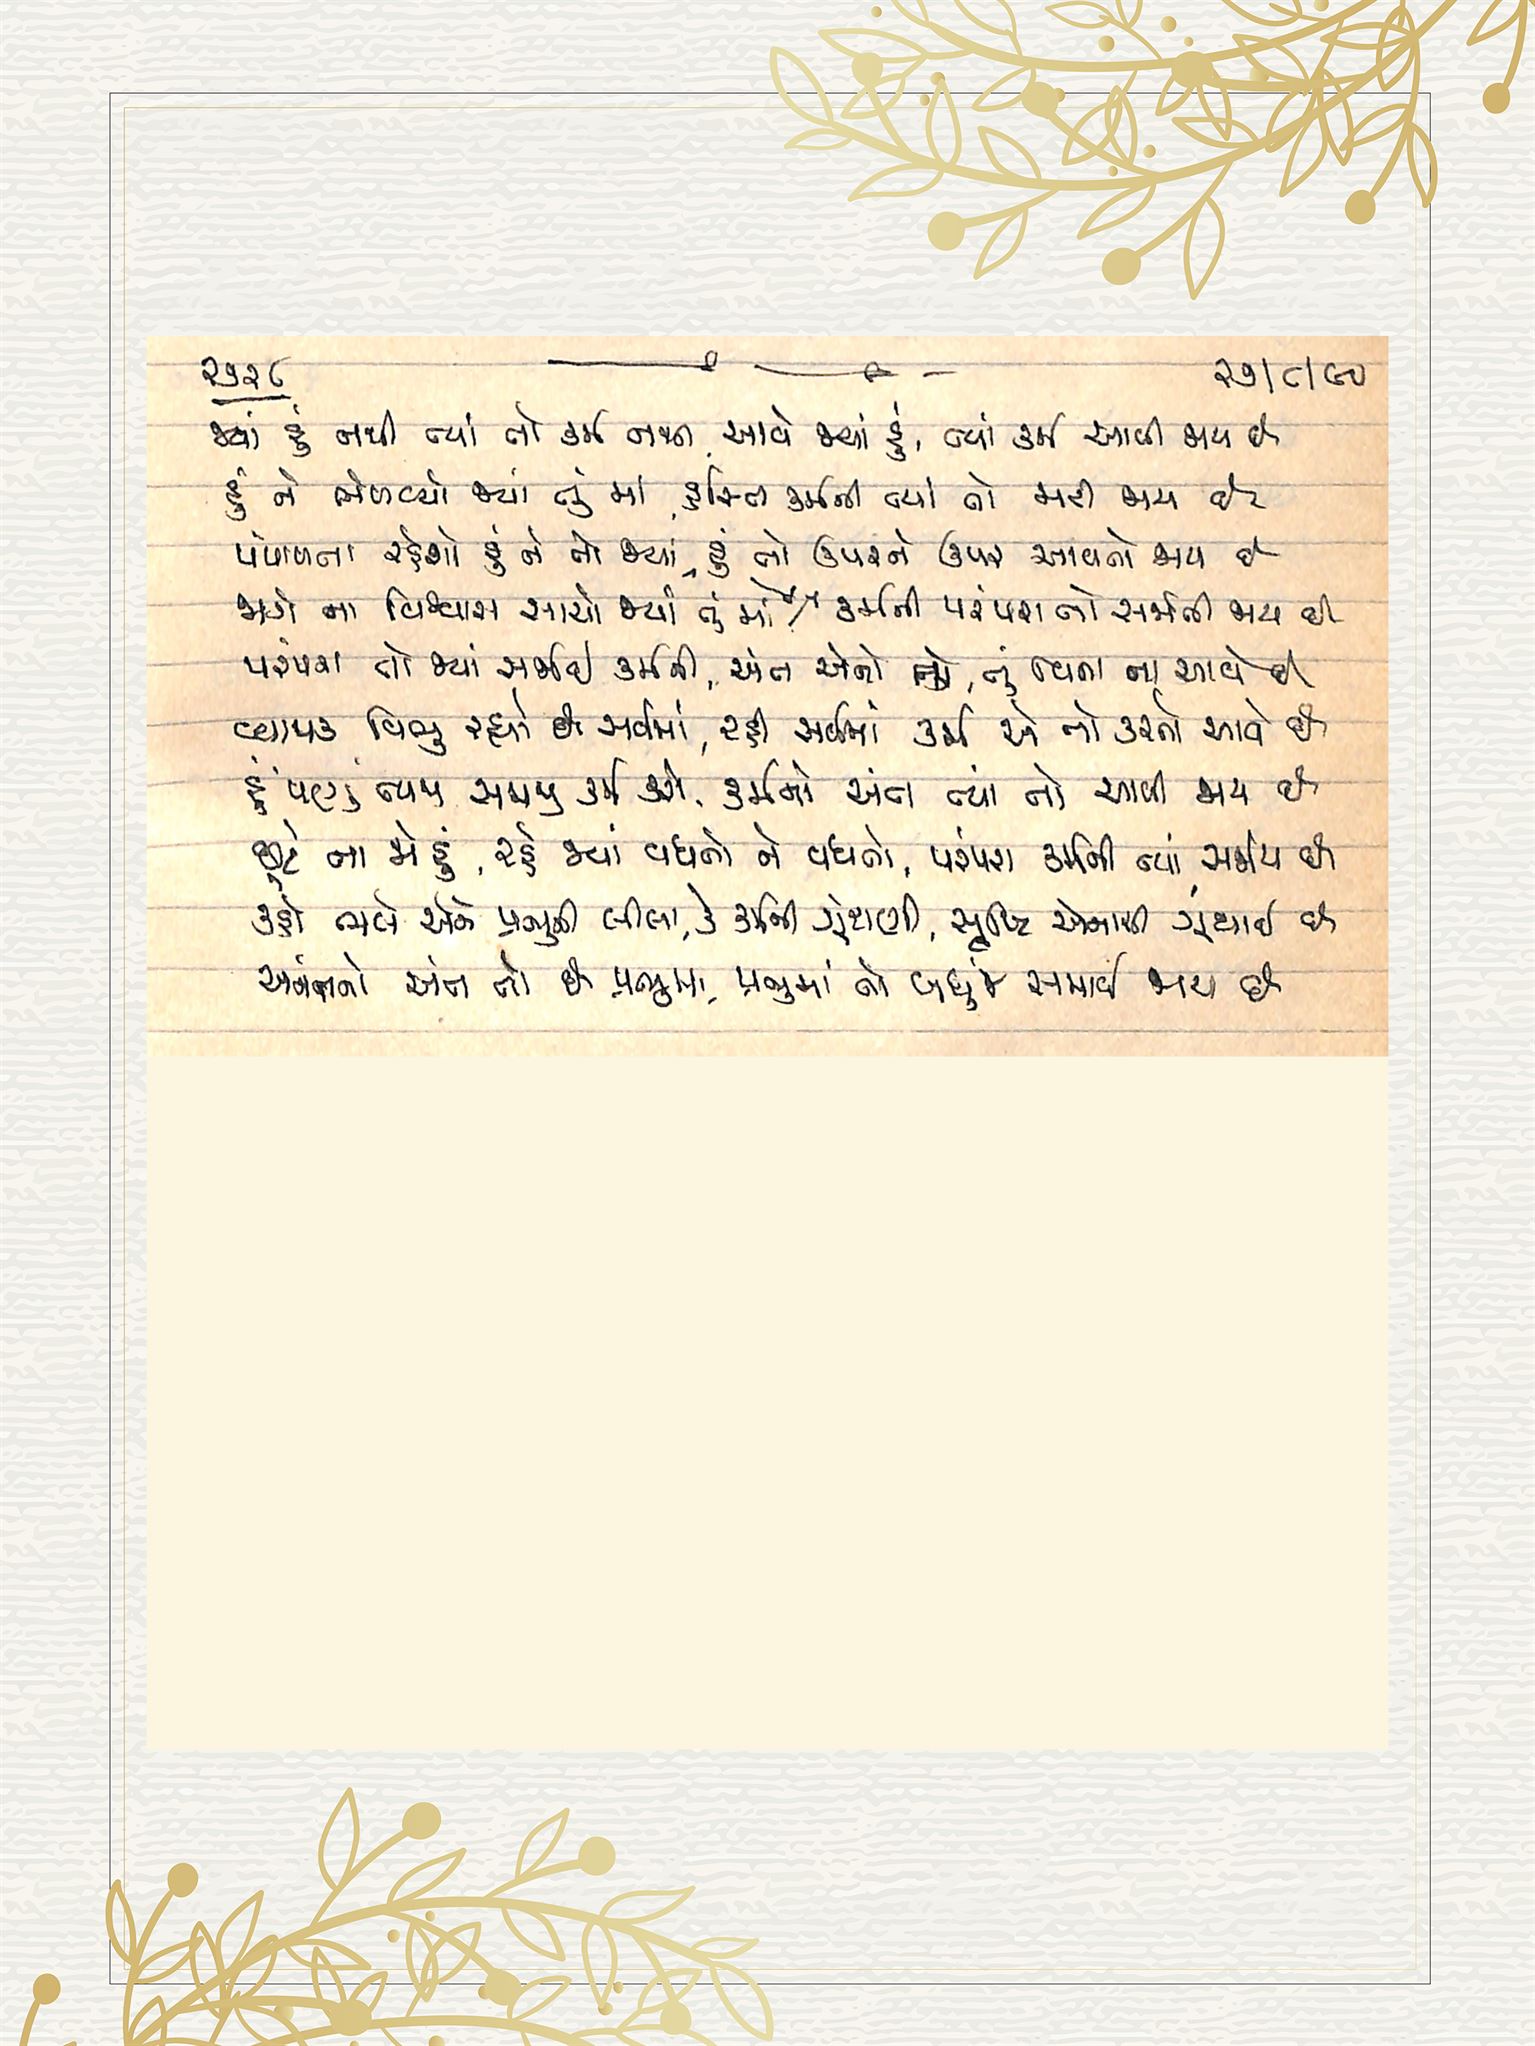 ૨૭૨૮ ૨૭/૮/૯૦
જ્યાં હું નથી ત્યાં તો કર્મ નથી, આવે જ્યાં હું, ત્યાં કર્મ આવી જાય છે
હું ને ભેળવ્યો જ્યાં તું માં, હસ્તિ કર્મની ત્યાં તો મટી જાય છે
પંપાળતા રહેશો હું ને તો જ્યાં, હું તો ઉપરને ઉપર આવતો જાય છે
જાગે ના વિશ્વાસ સાચો જ્યાં તું માં, કર્મની પરંપરા તો સર્જાતી જાય છે
પરંપરા તો જ્યાં સર્જાઈ કર્મની, અંત એનો તો, તું વિના ના આવે છે
વ્યાપક વિભુ રહ્યો છે સર્વમાં, રહી સર્વમાં કર્મ એ તો કરતો આવે છે
હું પણું ત્યજી સમજી કર્મ કરો, કર્મનો અંત ત્યાં તો આવી જાય છે
છૂટે ના જો હું, રહે જ્યાં વધતો ને વધતો, પરંપરા કર્મની ત્યાં સર્જાય છે
કહો ભલે એને પ્રભુની લીલા, કે કર્મની ગૂંથણી, સૃષ્ટિ એનાથી ગૂંથાઈ છે
અનંતનો અંત તો છે પ્રભુમાં, પ્રભુમાં તો બધું સમાઈ જાય છે